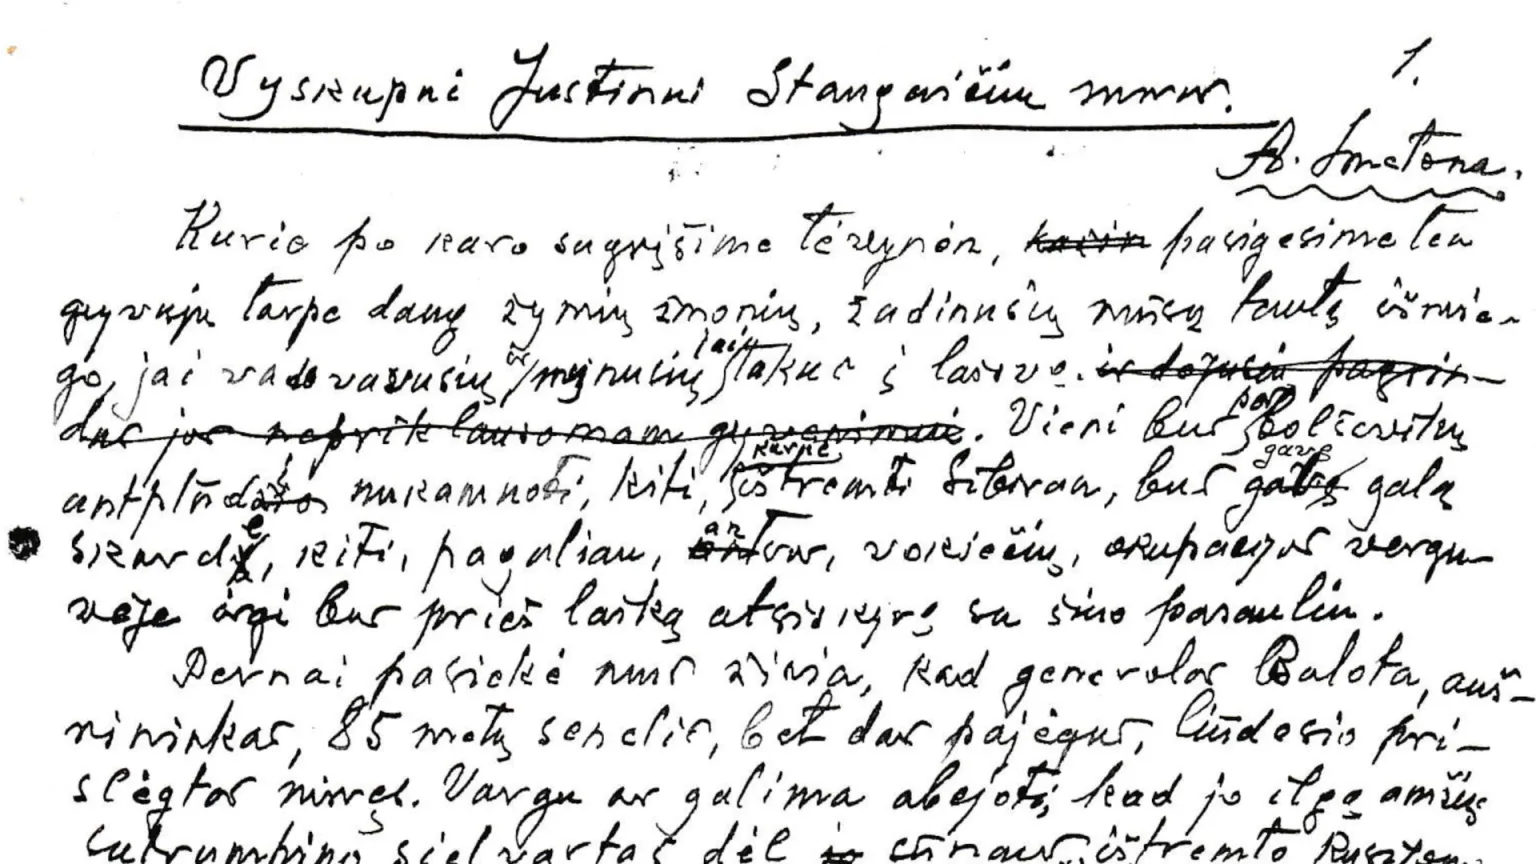 1.
Vyskupui Justinui Staugaičiui mirus.
A. Smetona.
Kurie po karo sugrįšime tėvynėn, pasigesime ten
gyvųjų tarpe daug žymių žmonių, žadinusių mūsų tautą iš miego-
go, jai vadovavusių ir mynusių jai takus į laisvę. ir dėjusių pagrin-
dus jos nepriklausomam gyvenimui. Vieni bus po bolševikų
antplūdžio nukamuoti, kiti, kurie ištremti Sibiran, bus gavę galą
skurde, kiti, pagaliau, antru, vokiečių, okupacijos vergu-
vėje irgi bus prieš laiką atsiskyrę su šiuo pasauliu.
Pernai pasiekė mus žinia, kad generolas Bulota, auš-
rininkas, 85 metų senelis, bet dar pajėgus, liūdesio pri-
slėgtas miręs. Vargu ar galima abejoti, kad jo ilgą amžių
sutrumpino sielvartas dėl sūnaus, ištremto